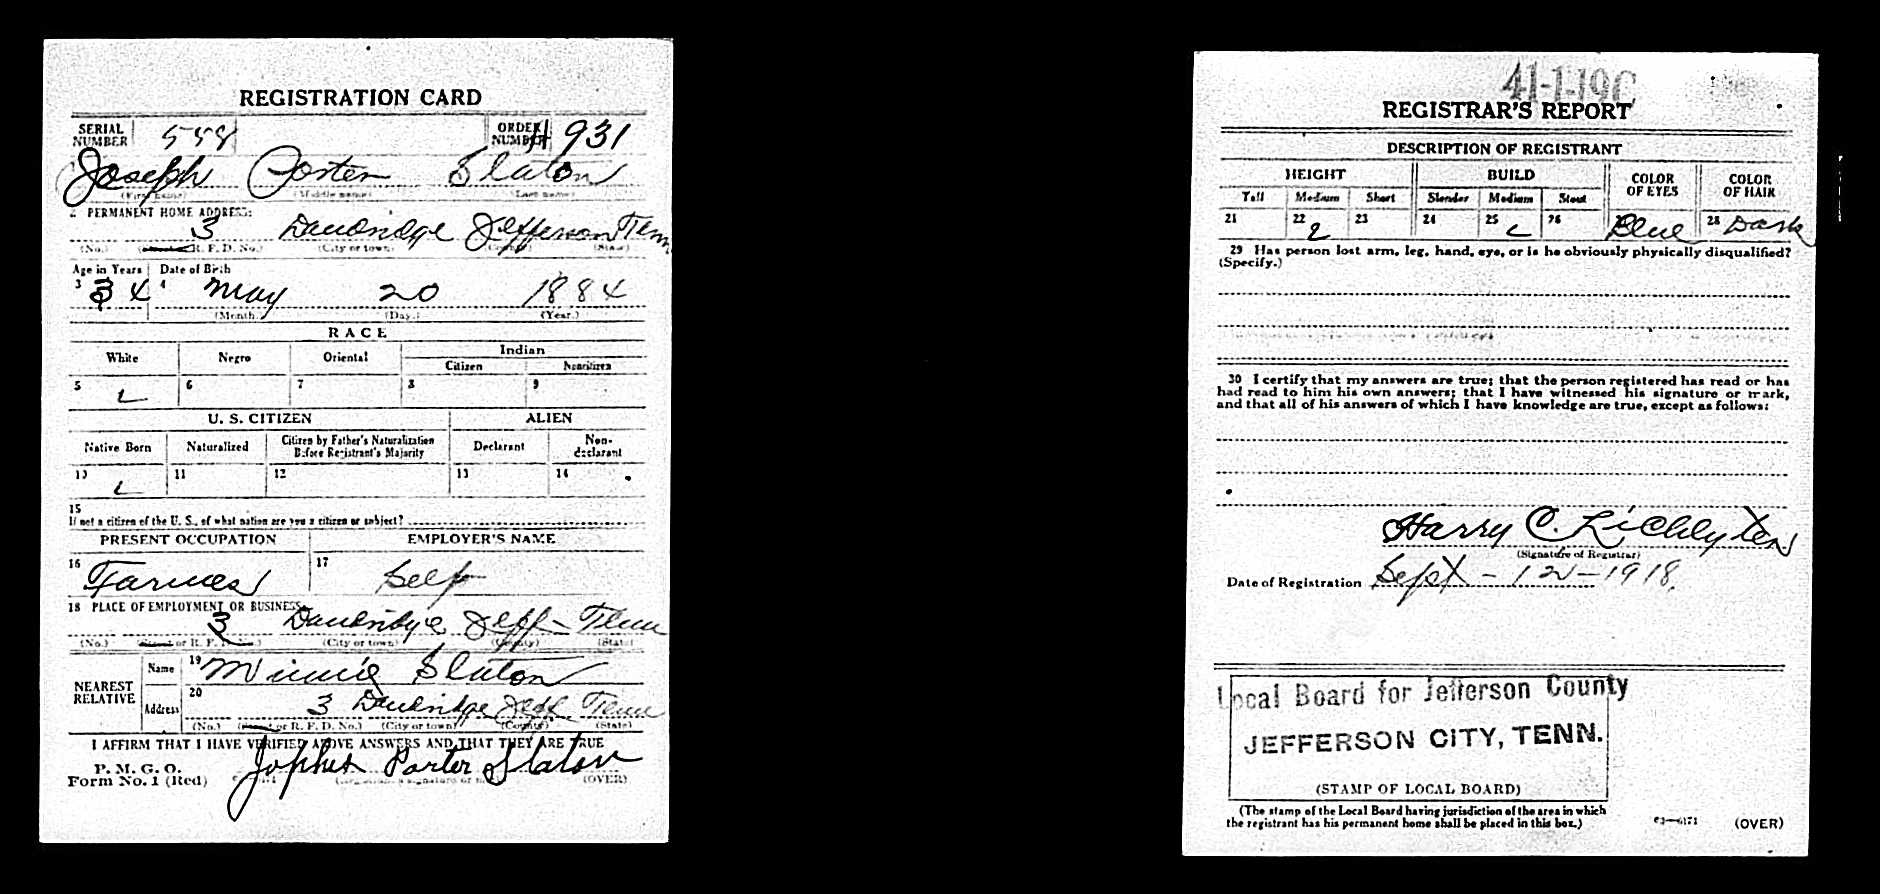 REGISTRATION CARD
SERIAL NUMBER 558 ORDER NUMBER A 931
Joseph Porter Slaton
(First name) (Middle name) (Last name)
2 PERMANENT HOME ADDRESS:
3 Dandridge Jefferson Tenn
(No.) R. F. D. No.) (City or town) (County) (State)
Age in Years Date of Birth
3 34 4 May 20 1884
(Month.) (Day.) (Year.)
RACE
White Negro Oriental Indian
Citizen Noncitizen
5 6 7 8 9
U. S. CITIZEN ALIEN
Native Born Naturalized Citizen by Father's Naturalization Before Registrant's Majority Declarant Non-declarant
10 11 12 13 14
15
If not a citizen of the U. S., of what nation are you a citizen or subject?
PRESENT OCCUPATION EMPLOYER'S NAME
16 Farmer 17 Self
18 PLACE OF EMPLOYMENT OR BUSINESS:
3 Dandridge Jeff- Tenn
(No.) (Street or R. F. D. No.) (City or town) (County) (State)
NEAREST RELATIVE Name 19 Minnie Slaton
Address 20 3 Dandridge Jeff Tenn
(No.) (Street or R. F. D. No.) (City or town) (County) (State)
I AFFIRM THAT I HAVE VERIFIED ABOVE ANSWERS AND THAT THEY ARE TRUE
P. M. G. O.
Form No. 1 (Red) Jophes Porter Slaton
(Registrant's signature or mark) (OVER)
41-1-19 C
REGISTRAR'S REPORT
DESCRIPTION OF REGISTRANT
HEIGHT BUILD COLOR OF EYES COLOR OF HAIR
Tall Medium Short Slender Medium Stout
21 22 23 24 25 26 Blue 28 Dark
29 Has person lost arm, leg, hand, eye, or is he obviously physically disqualified?
(Specify.)
30 I certify that my answers are true; that the person registered has read or has
had read to him his own answers; that I have witnessed his signature or mark,
and that all of his answers of which I have knowledge are true, except as follows:
Harry C. Lichlyter
(Signature of Registrar)
Date of Registration Sept - 12 - 1918.
Local Board for Jefferson County
JEFFERSON CITY, TENN.
(STAMP OF LOCAL BOARD)
(The stamp of the Local Board having jurisdiction of the area in which
the registrant has his permanent home shall be placed in this box.)
63—6171 (OVER)